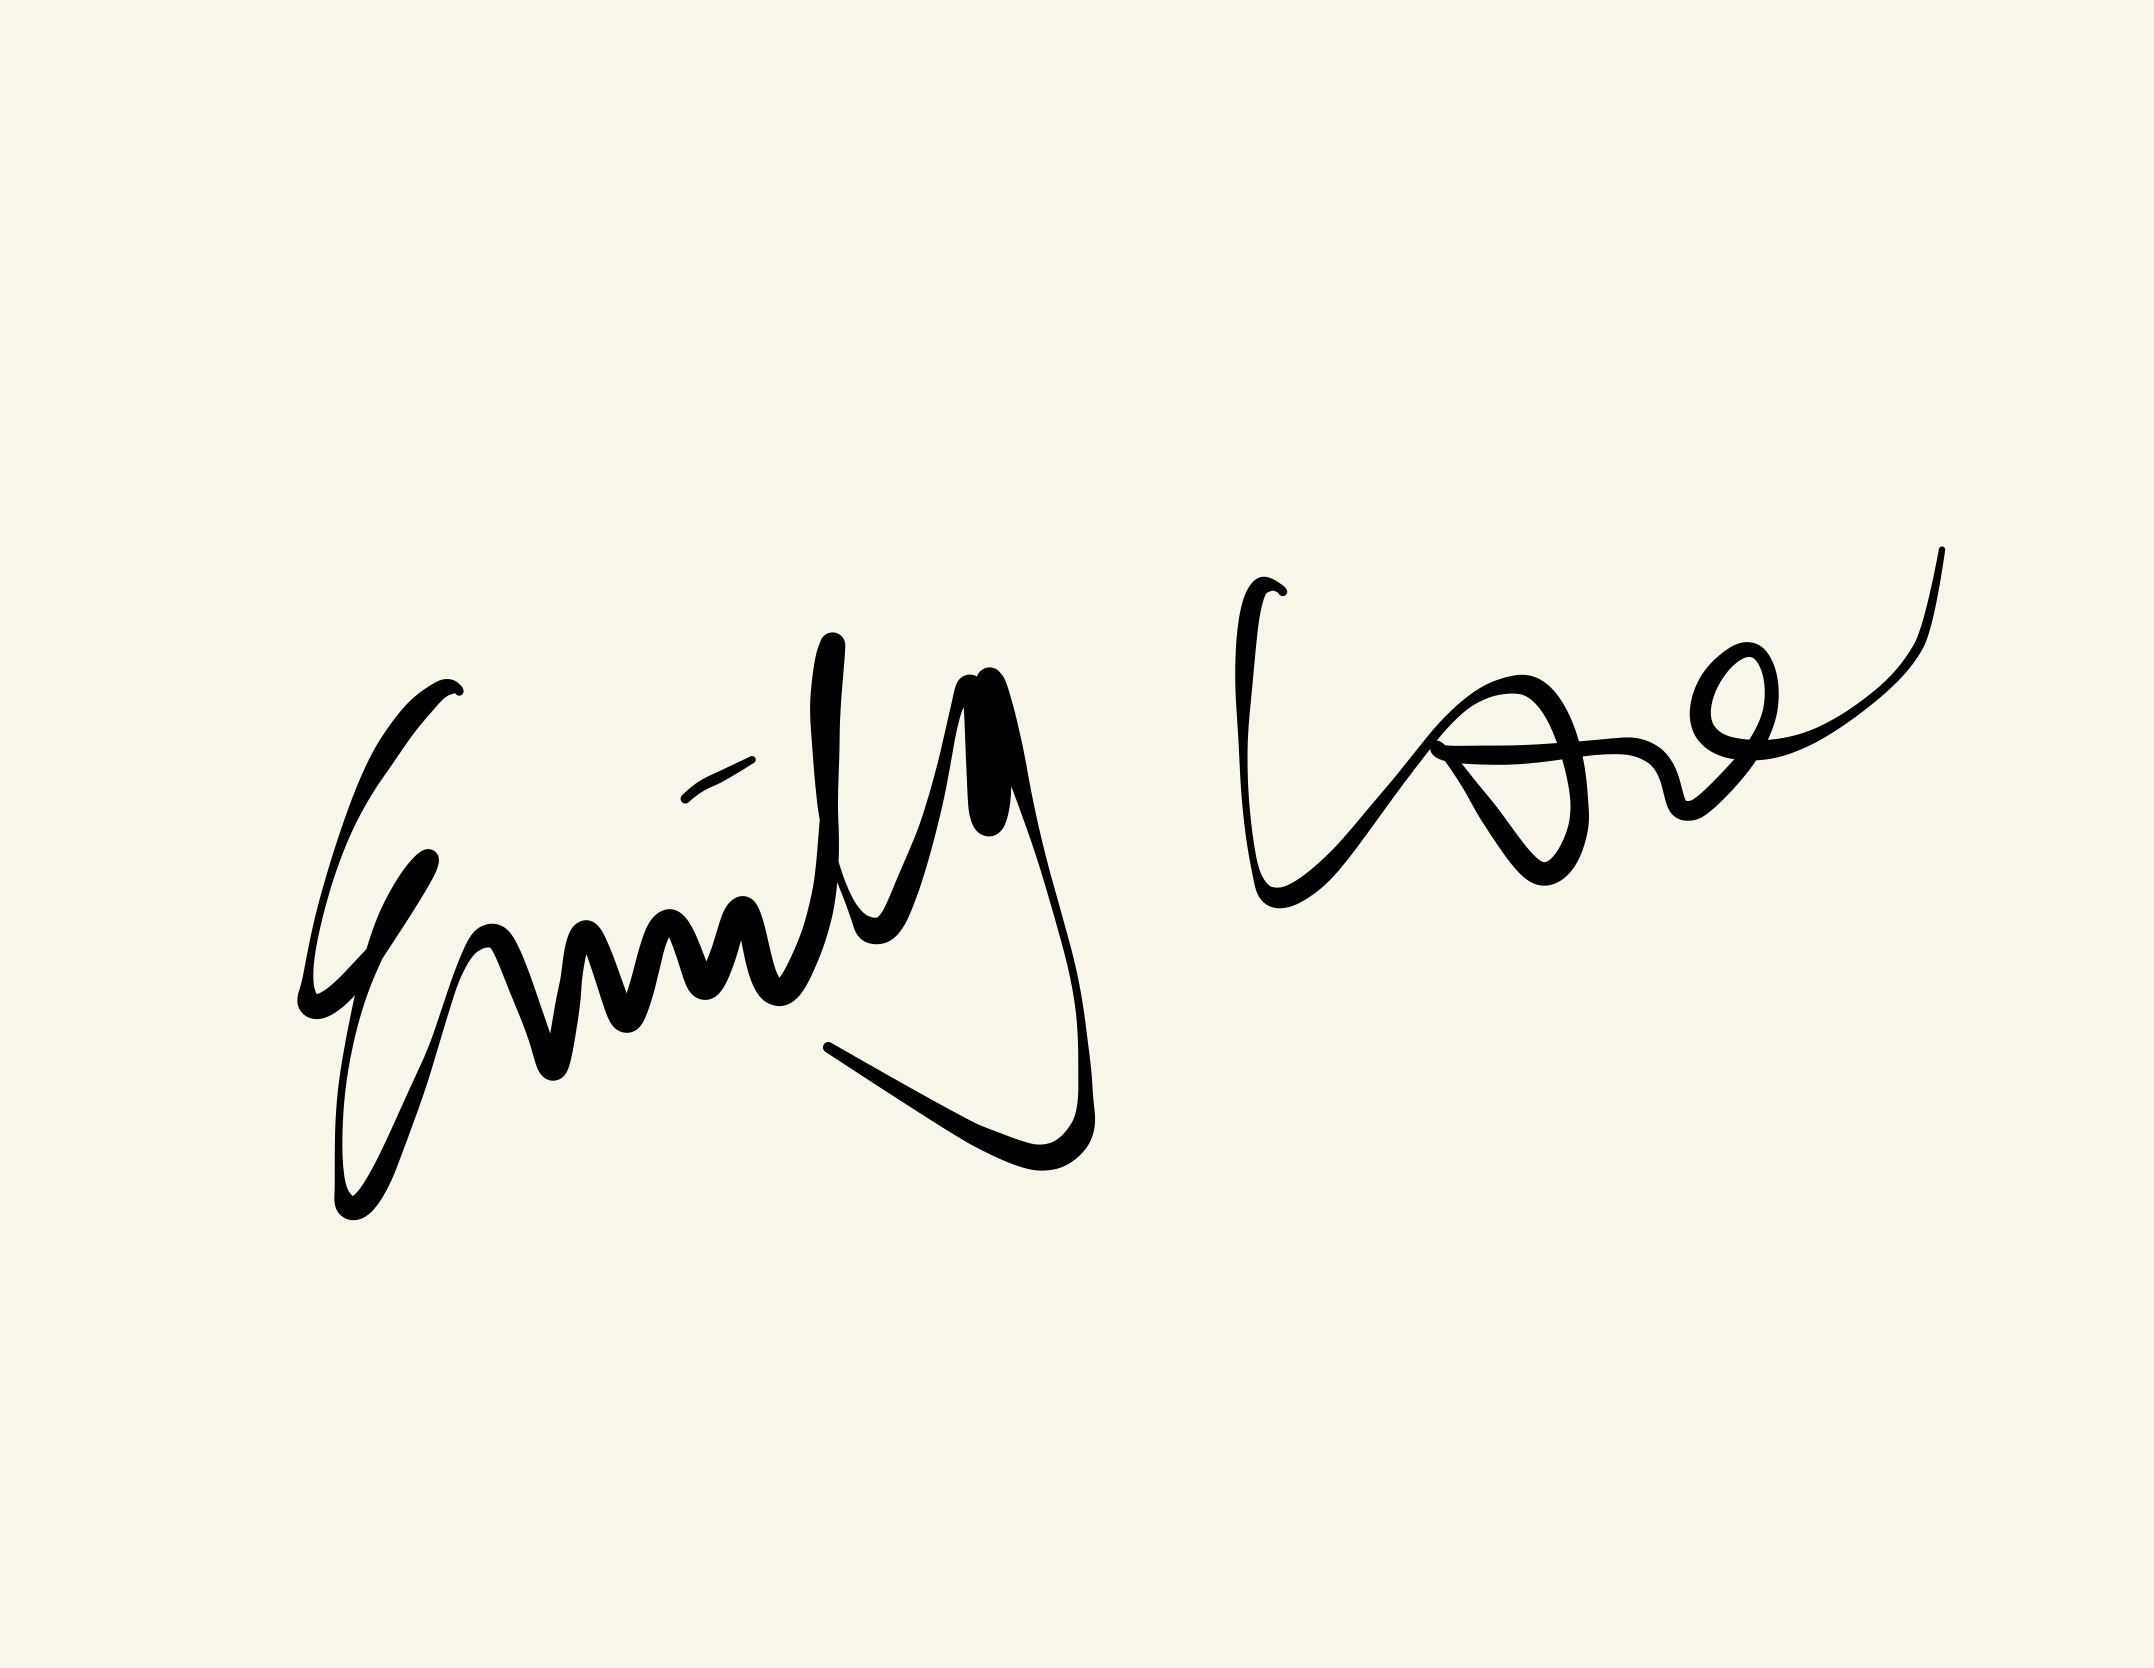 Emily Lowe